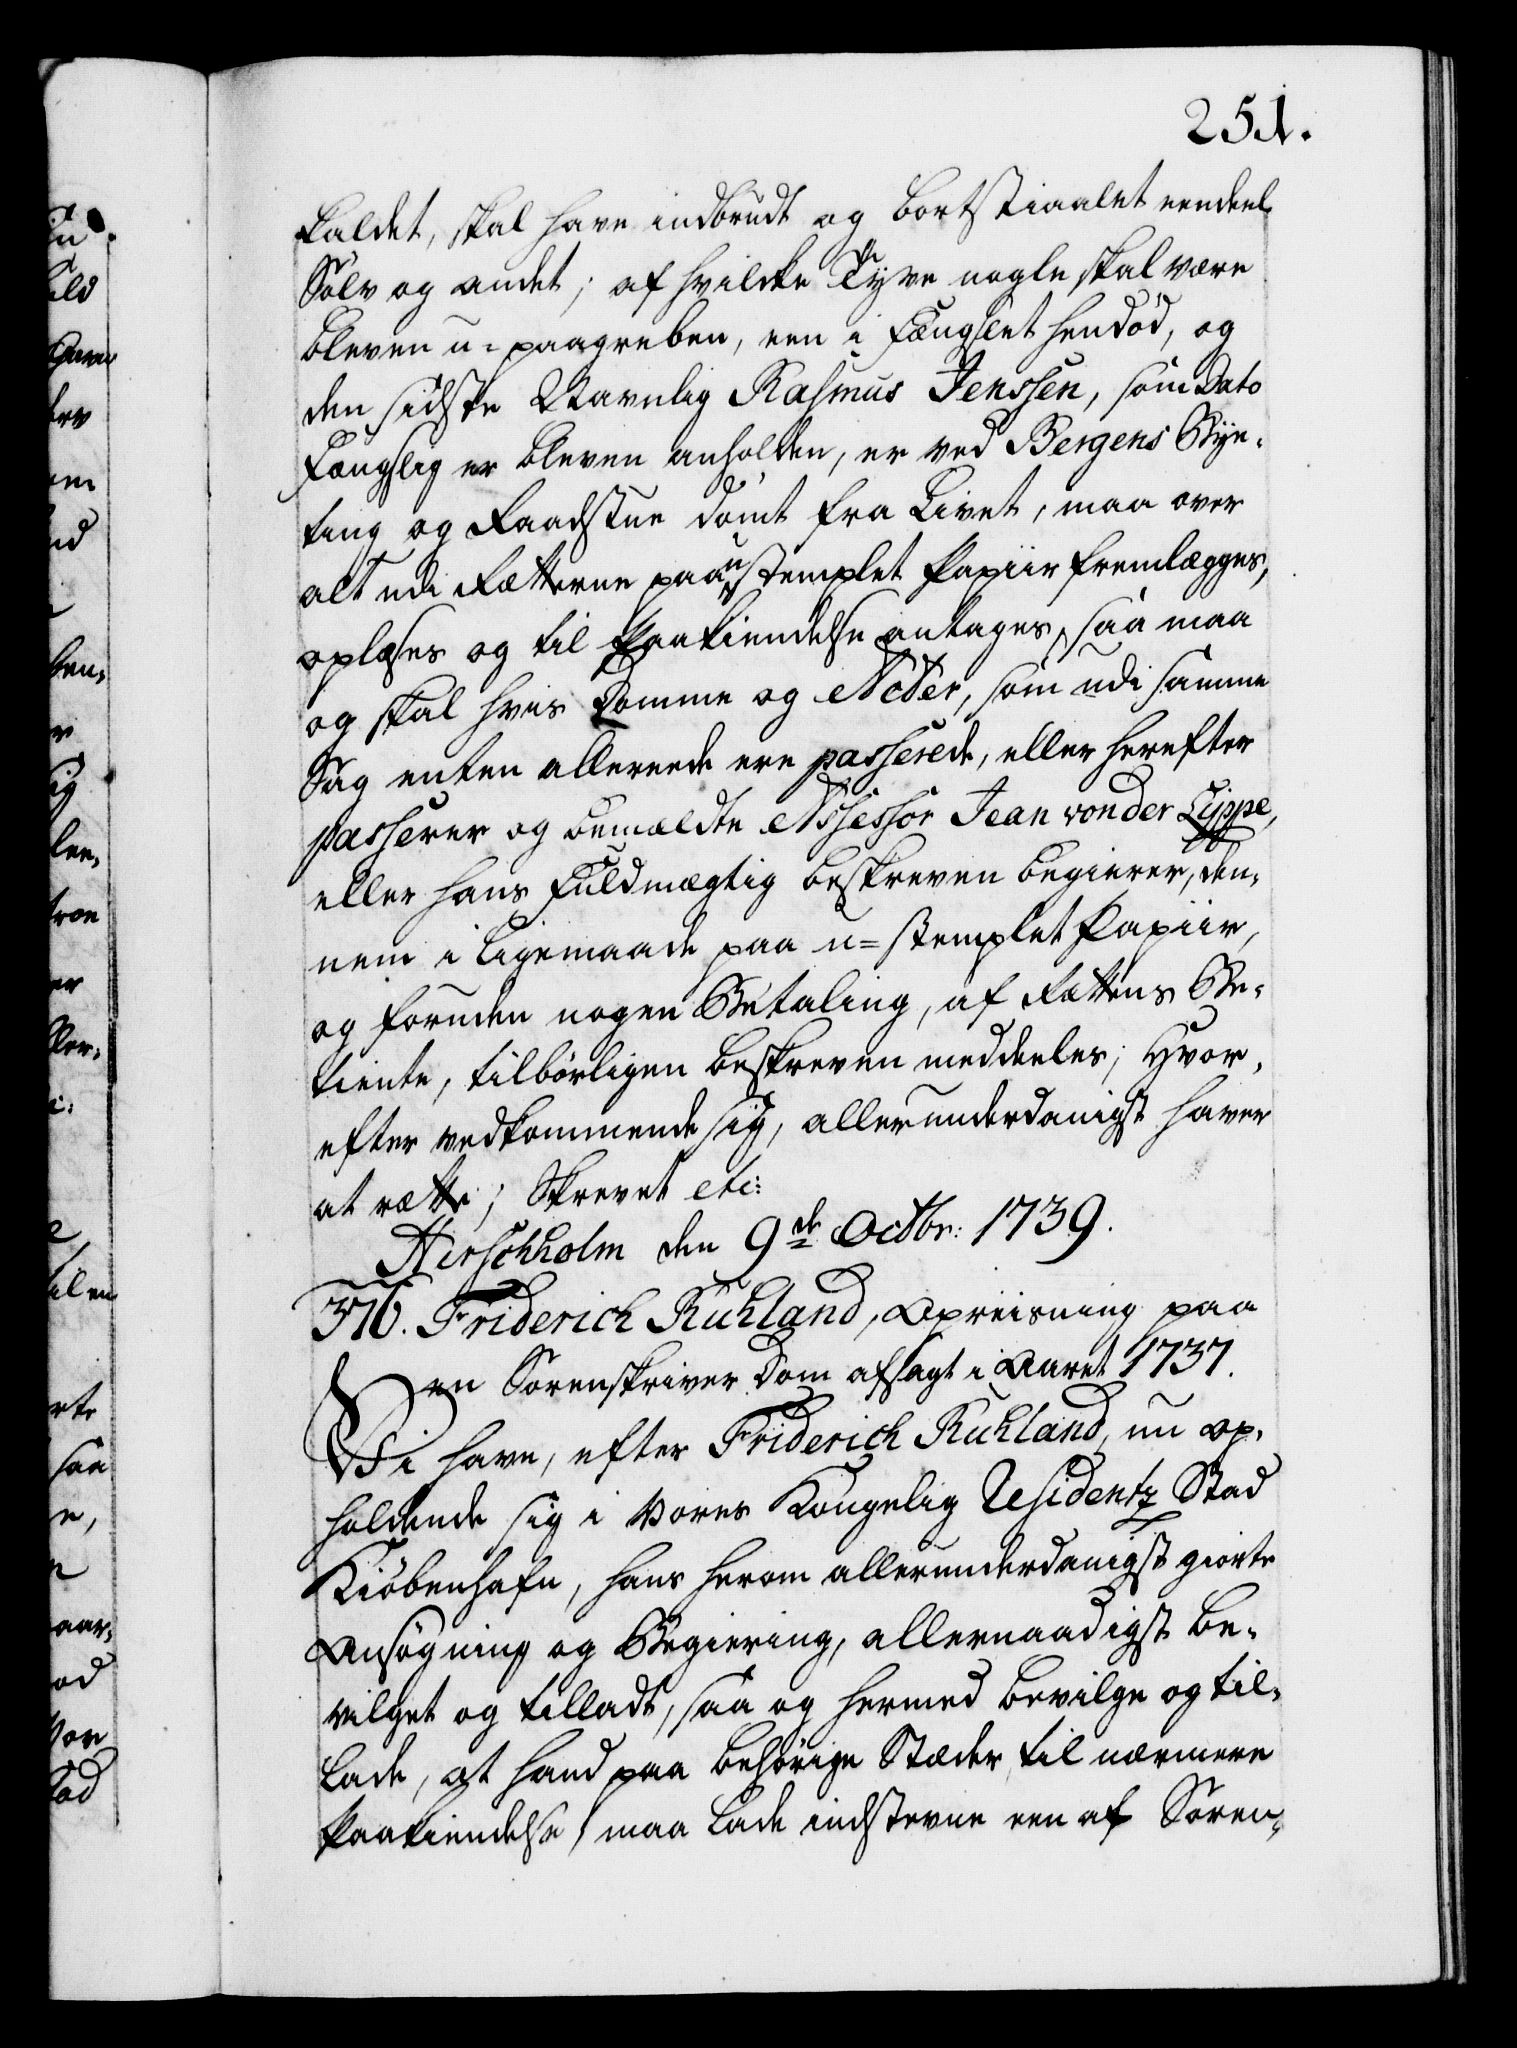 251.
kaldet, skal have indbrudt og bortstiaalet eendeel
Sölv og andet; af hvilcke Tyve nogle skal være
bleven u-paagreben, een i Fængslet hendöd, og
den sidste Navnlig Rasmus Jenssen, som Dato
Fængslig er bleven anholden, er ved Bergens Bÿe-
ting og Raadstue dömt fra Livet, maa over
alt udi Rætterne paa u-stemplet Papiir fremlægges,
oplæses og til Paakiendelse antages, saa maa
og skal hvis Domme og Acter, som udi samme
Sag enten allereede ere passerede, eller herefter
passerer og bemældte Assessor Jean von der Lippe,
eller hans Fuldmægtig beskreven begierer, den-
nem i ligemaade paa u-stemplet Papiir,
og foruden nogen Betaling, af Rættens Be-
tiente, tilbørligen beskreven meddeeles; Hvor-
efter vedkommende sig, allerunderdanigst haver
at rætte; Skrevet etc:
Hirschholm den 9de Octbr: 1739.
376. Friderich Ruhland, Opreisning paa
en Sorenskriver Dom afsagt i Aaret 1737.
Vi have, efter Friderich Ruhland, nu op-
holdende sig i Vores Kongelig Residentz Stad
Kiöbenhafn, hans herom allerunderdanigst giorte
Ansøgning og Begiering, allernaadigst be-
vilget og tilladt, saa og hermed bevilge og til-
lade, at hand paa behørige Stæder, til nærmere
Paakiendelse, maa lade indstevne een af Soren-